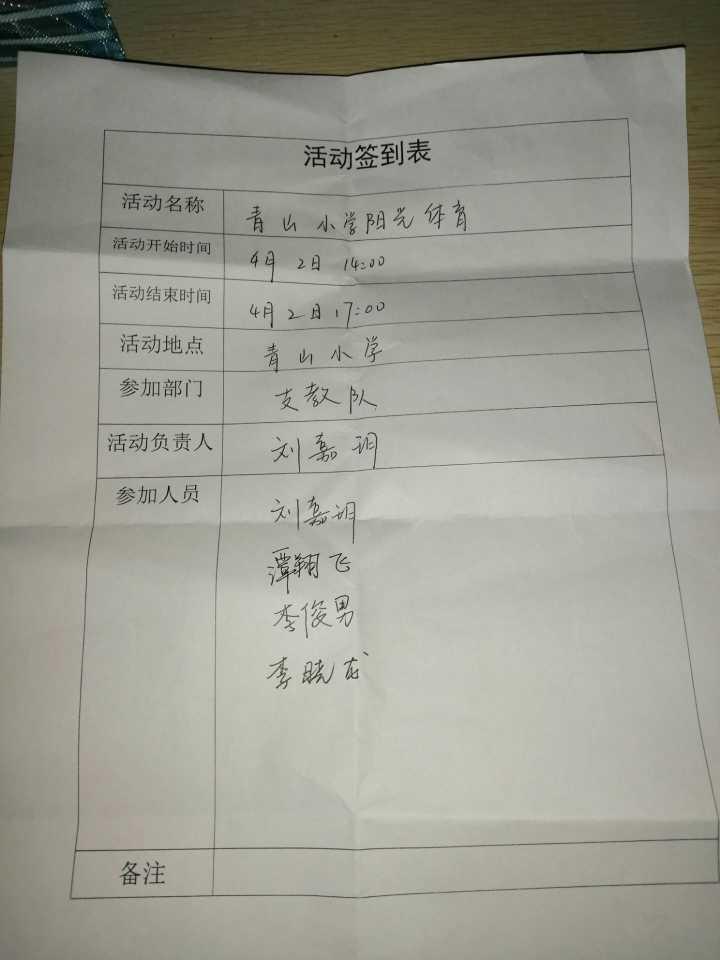 活动签到表
活动名称 青山小学阳光体育
活动开始时间 4月2日 14:00
活动结束时间 4月2日 17:00
活动地点 青山小学
参加部门 支教队
活动负责人 刘嘉玥
参加人员 刘嘉玥
谭翔飞
李俊男
李晓龙
备注